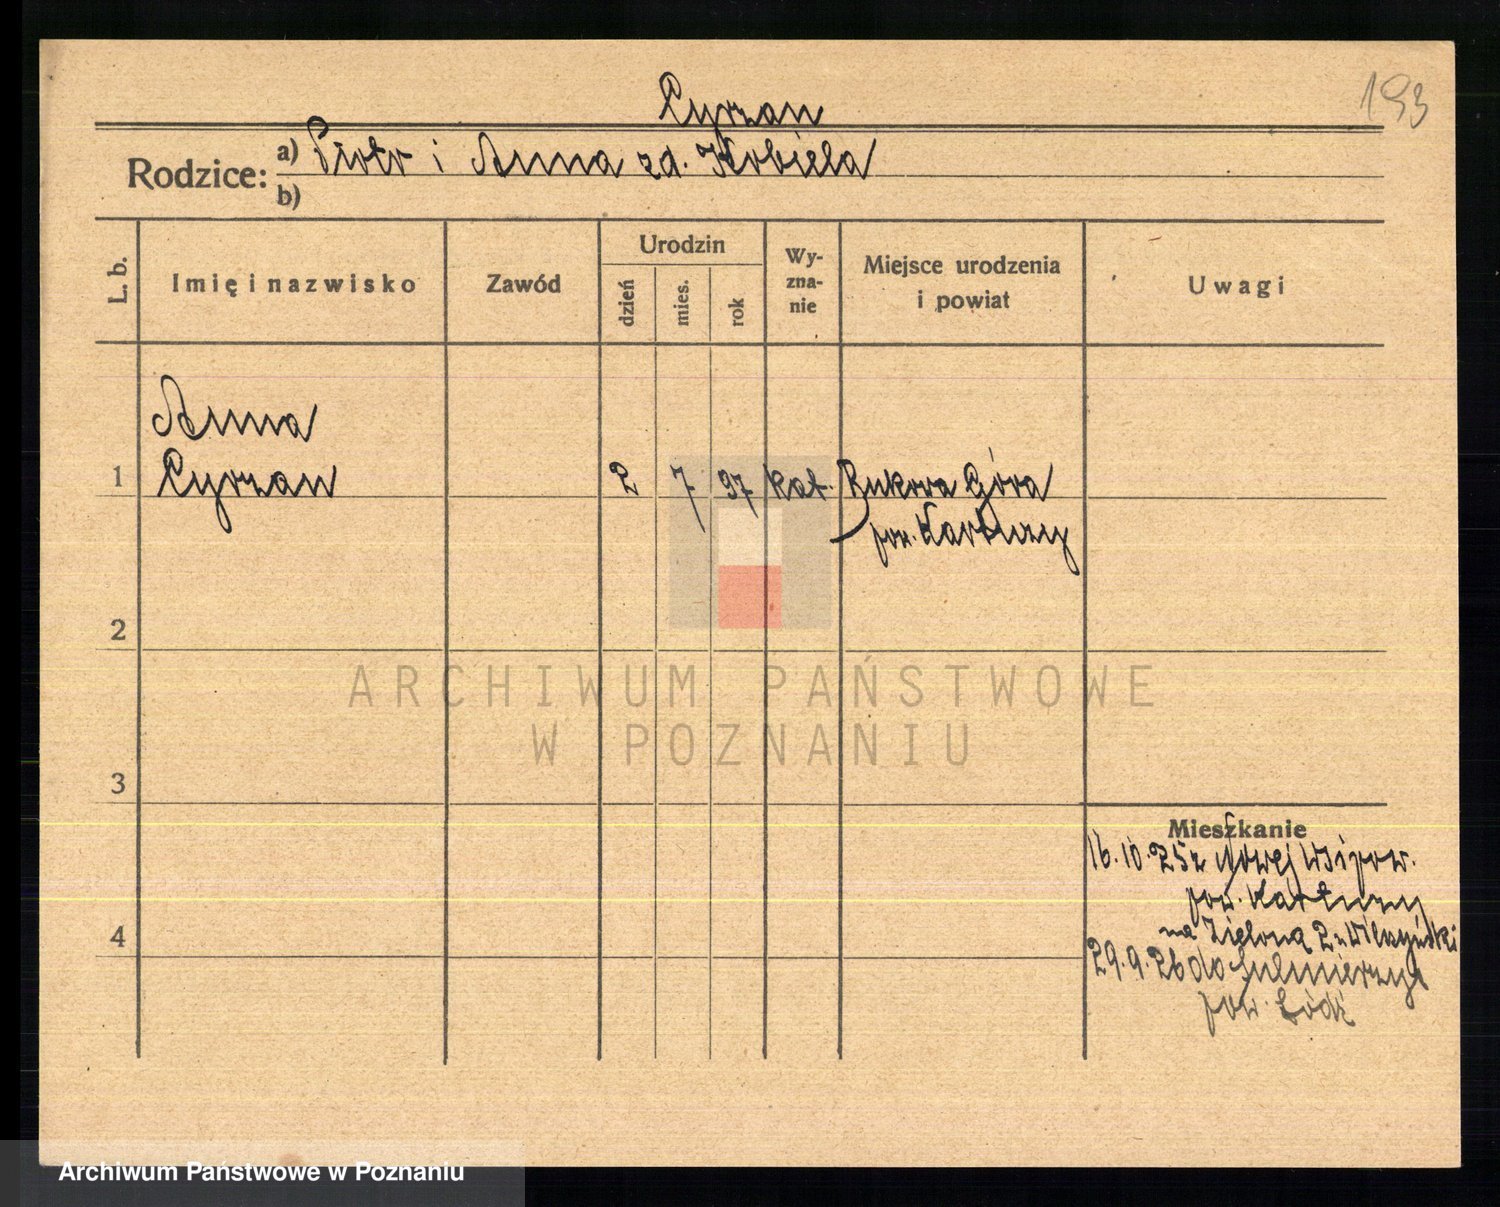 193
Cyrzan
Rodzice: a) Piotr i Anna zd. Kobiela
b)
L. b.
Imię i nazwisko
Zawód
Urodzin
dzień
mies.
rok
Wy-
zna-
nie
Miejsce urodzenia
i powiat
Uwagi
Anna
1 Cyrzan 2 7 97 kat. Bukowa Góra
pow. Kartuzy
2
ARCHIWUM PAŃSTWOWE
W POZNANIU
3
Mieszkanie
16.10.25 z Nowej Wsi pow.
pow. Kartuzy
4
na Zieloną 2
29.9.26 do Sulmierzyc
pow. Łódź
Archiwum Państwowe w Poznaniu